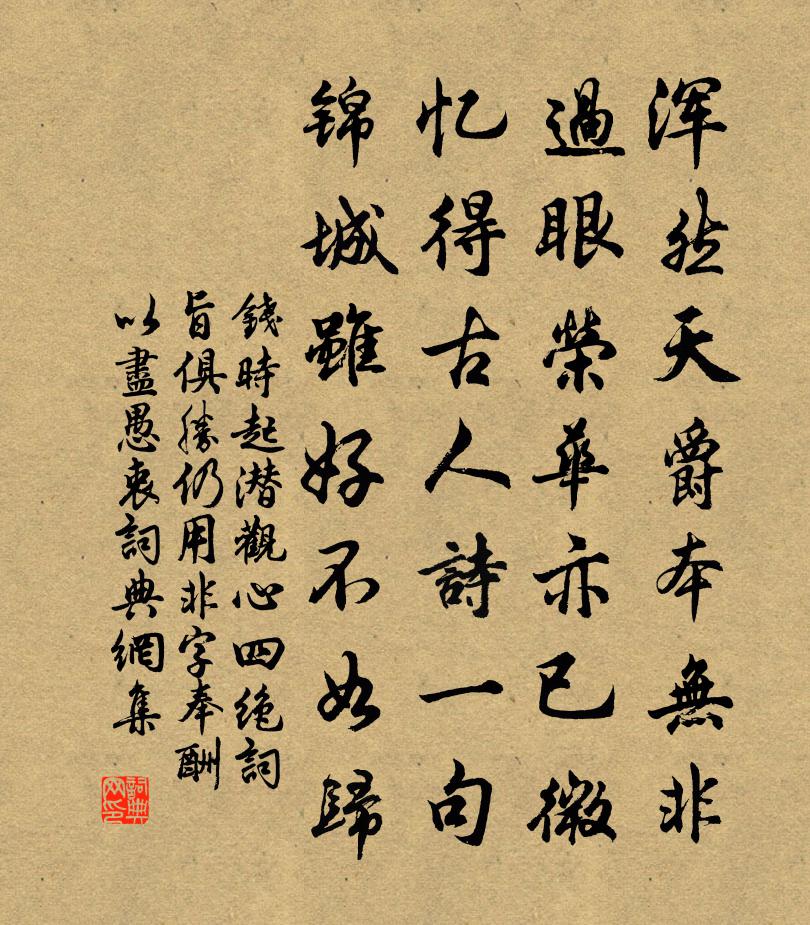 浑然天爵本無非
過眼榮華亦已微
忆得古人詩一句
錦城雖好不如歸
錢時起潜觀心四绝詞
旨俱勝仍用非字奉酬
以盡愚衷詞典網集
詞典
网印